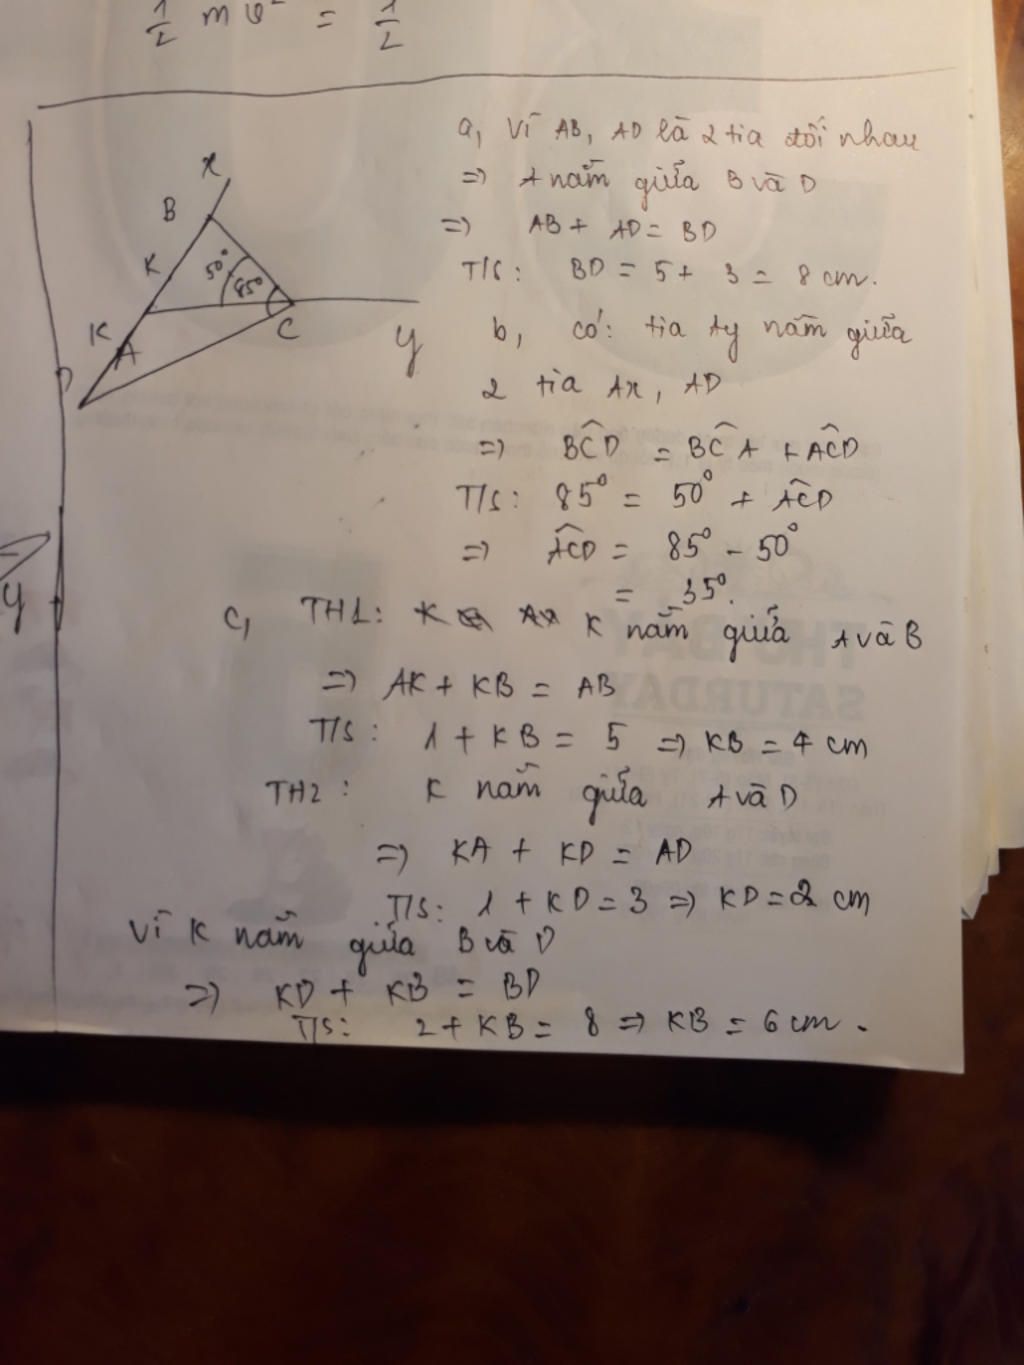 1/2 m v² = 1/2
x
B
K
50°
85°
K
A
C
y
D
y
a, Vì AB, AD là 2 tia đối nhau
=> A nằm giữa B và D
=> AB + AD = BD
T/S: BD = 5 + 3 = 8 cm.
b, có: tia Ay nằm giữa
2 tia Ax, AD
=> BĈD = BĈA + AĈD
T/S: 85° = 50° + AĈD
=> AĈD = 85° - 50°
= 35°.
c, TH1: K nằm giữa A và B
=> AK + KB = AB
T/S: 1 + KB = 5 => KB = 4 cm
TH2: K nằm giữa A và D
=> KA + KD = AD
T/S: 1 + KD = 3 => KD = 2 cm
Vì K nằm giữa B và D
=> KD + KB = BD
T/S: 2 + KB = 8 => KB = 6 cm.
SATURDAY